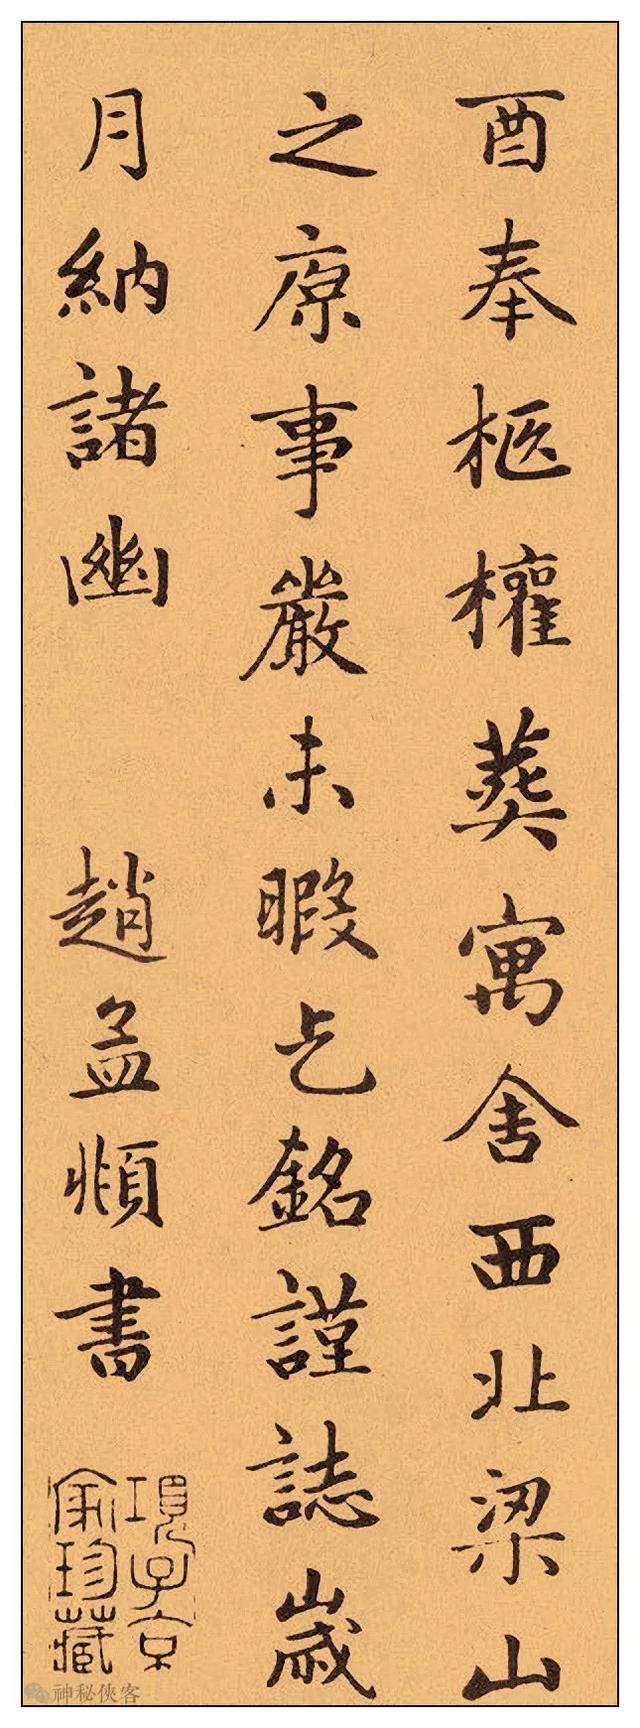 酉奉柩權葬寓舍西北梁山
之原事嚴未暇乞銘謹誌歲
月納諸幽 趙孟頫書
項子京
家珍藏
神秘俠客